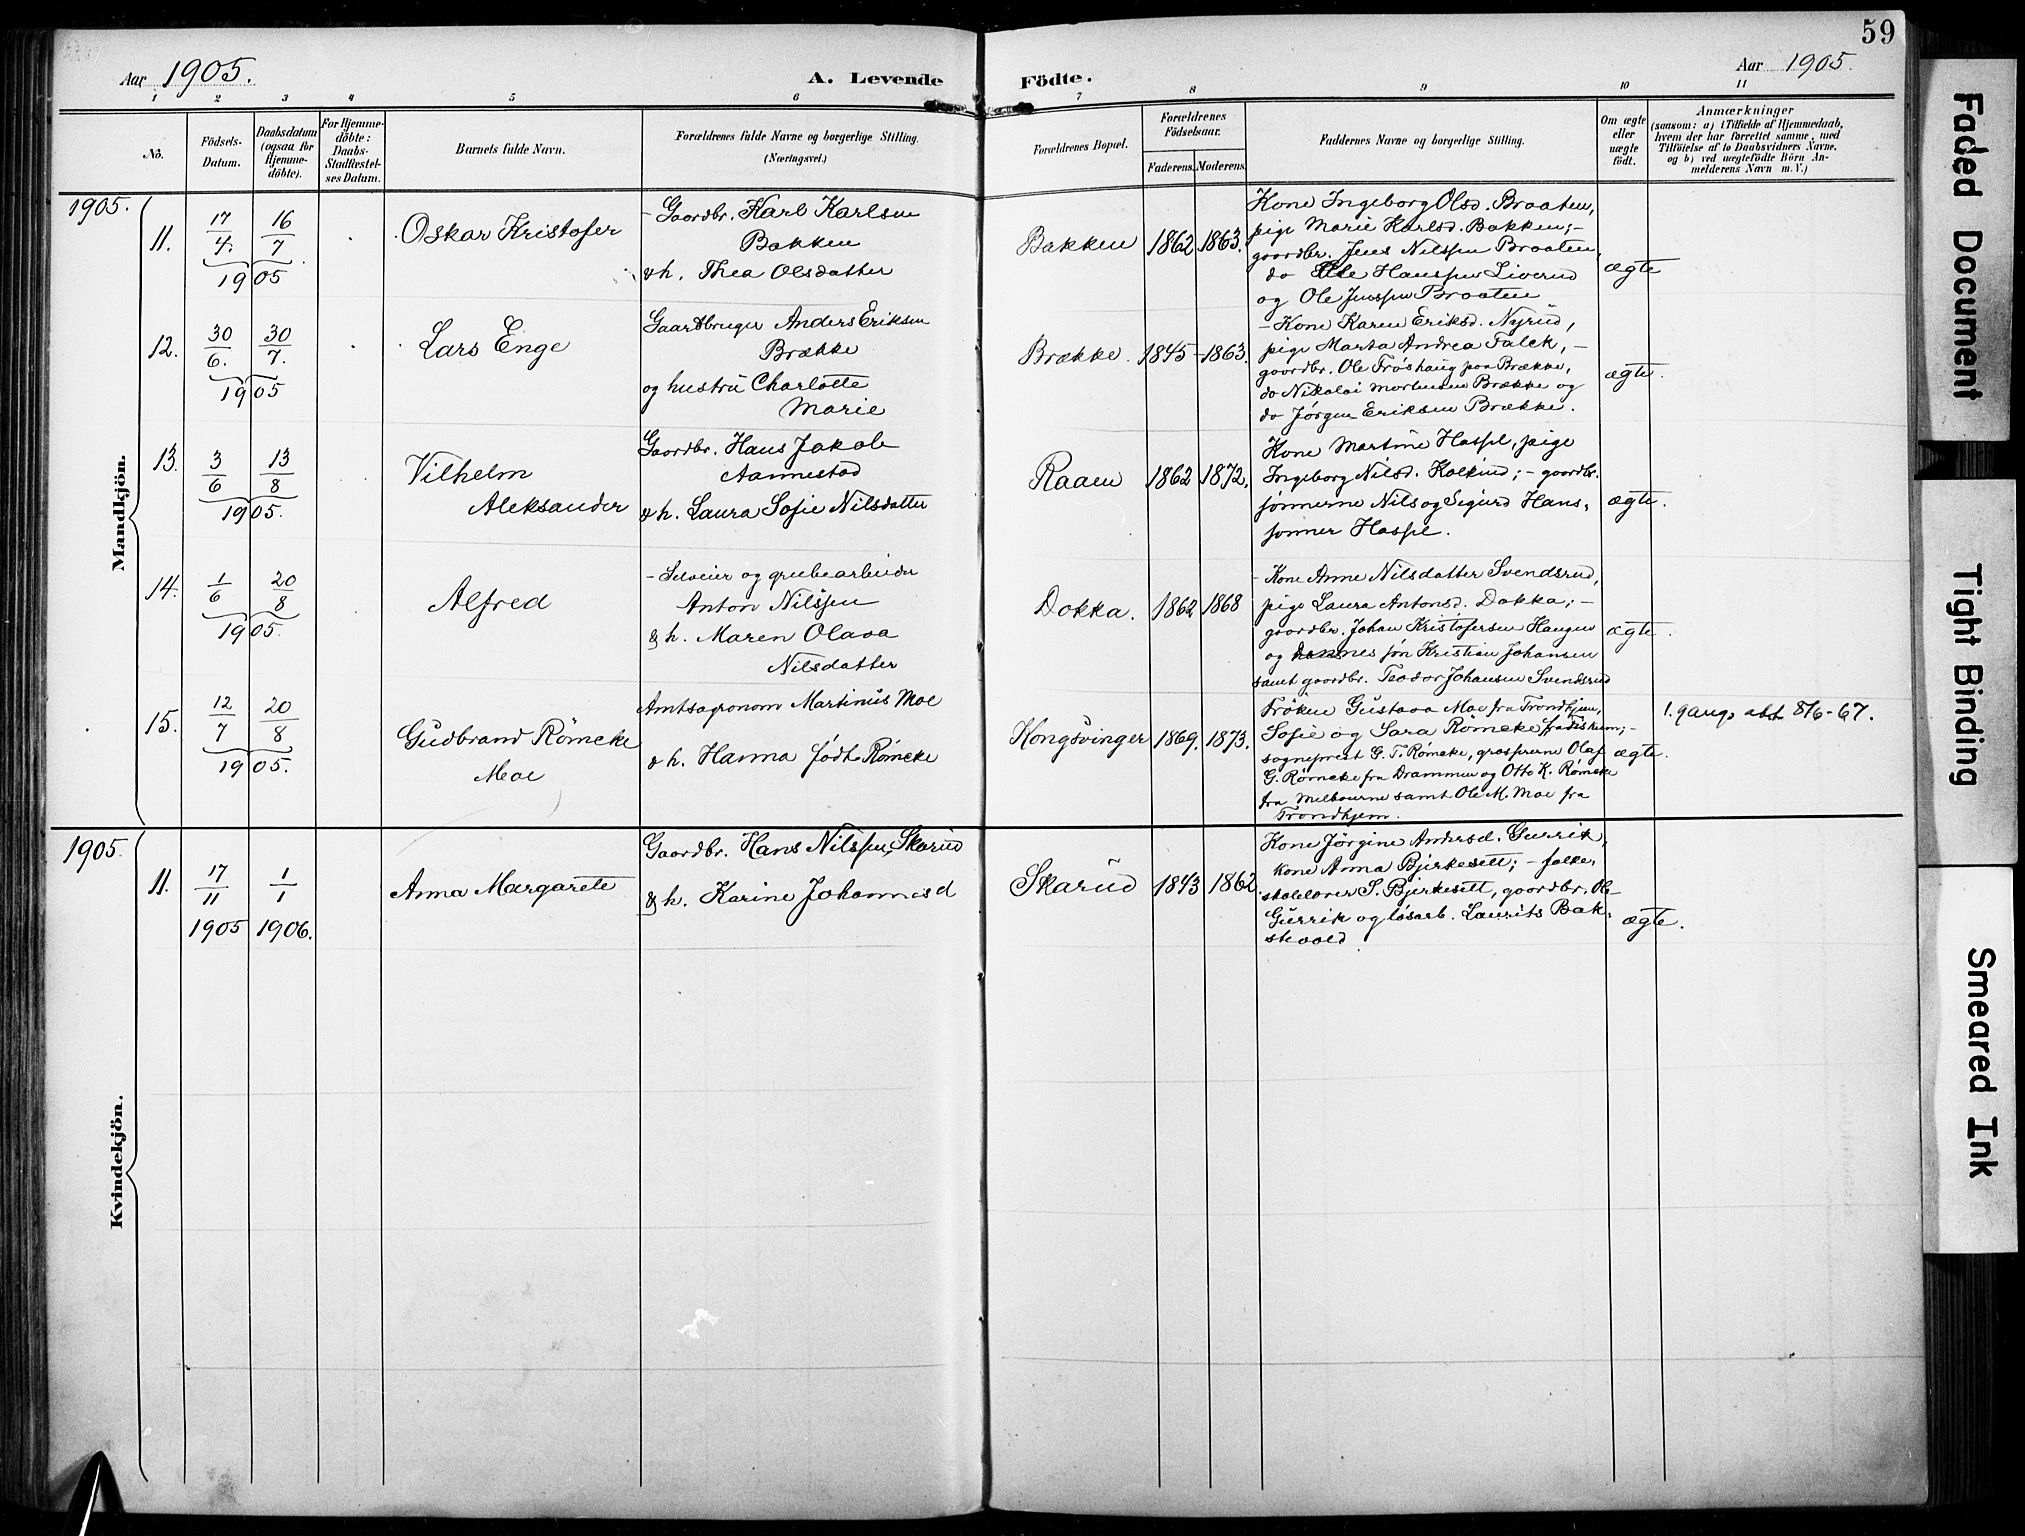 59
Aar 1905.
A. Levende Födte.
Aar 1905.
1 2 3 4 5 6 7 8 9 10 11
No.
Födsels-
Datum.
Daabsdatum
(ogsaa for
Hjemme-
döbte).
For Hjemme-
döbte:
Daabs-
Stadfæstel-
ses Datum.
Barnets fulde Navn.
Forældrenes fulde Navne og borgerlige Stilling.
(Næringsvei.)
Forældrenes Bopæl.
Forældrenes
Födselsaar.
Faderens. Moderens.
Faddernes Navne og borgerlige Stilling.
Om ægte
eller
uægte
födt.
Anmærkninger
(saasom: a) i Tilfælde af Hjemmedaab,
hvem der har forrettet samme, med
Tilföielse af to Daabsvidners Navne,
og b) ved uægtefödte Börn An-
melderens Navn m. V.)
Mandkjön.
1905.
11.
17/4. 16/7
1905
Oskar Kristofer
Gaardbr. Karl Karlsen
Bakken
& h. Thea Olsdatter
Bakken
1862 1863.
Kone Ingeborg Olsd. Braaten,
pige Marie Karlsd. Bakken; -
gaardbr. Jens Nilssen Braaten,
do Ole Hanssen Liverud
og Ole Jenssen Braaten
ægte
12.
30/6. 30/7.
1905
Lars Enge
Gaardbruger Anders Eriksen
Brække
og hustru Charlotte
Marie
Brække.
1845 - 1863.
- Kone Karen Eriksd. Nyrud,
pige Marta Andrea Falck, -
gaardbr. Ole Frøshaug paa Brække,
do Nikolai Mortensen Brække og
do Jørgen Eriksen Brække.
ægte.
13.
3/6 13/8
1905.
Vilhelm
Aleksander
Gaardbr. Hans Jakob
Aannestad
& h. Laura Sofie Nilsdatter
Raaen
1862 1872.
Kone Martine Hassel, pige
Ingeborg Nilsd. ; - gaardbr.
sønnerne Nils og Sigurd Hans-
sønner Hassel.
ægte.
14.
1/6 20/8
1905.
Alfred
- Selveier og grubearbeider
Anton Nilssen
& h. Maren Olava
Nilsdatter
Dokka.
1862 1868
- Kone Anne Nilsdatter Svendsrud,
pige Laura Antonsd. Dokka; -
gaardbr. Johan Kristofersen Haugen
og dennes søn Kristian Johansen
samt gaardbr. Teodor Johansen Svendsrud
ægte.
15.
12/7 20/8
1905.
Gudbrand Römcke
Moe
Amtsagronom Martinus Moe
& h. Hanna født Rømcke
Kongsvinger
1869. 1873.
Frøken Gustava Moe fra Trondhjem,
Sofie og Sara Rømcke fra Eiskum; -
sogneprest G. T. Rømcke, grosserne Olaf
G. Rømcke fra Drammen og Otto K. Rømcke
fra Melbourne samt Ole M. Moe fra
Trondhjem.
ægte.
1. gangs att. 8/6-67.
Kvindekjön.
1905.
11.
17/11 1/1
1905 1906.
Anna Margarete
Gaardbr. Hans Nilssen Skarud
& h. Karine Johannesd
Skarud
1843 1862.
Kone Jørgine Andersd. Gurrik,
kone Anna Bjerkesett; - folke-
skolelærer S. Bjerkesett, gaardbr. Ole
Gurrik og løsarb. Laurits Bak-
stevold.
ægte.
Faded Document
Tight Binding
Smeared Ink